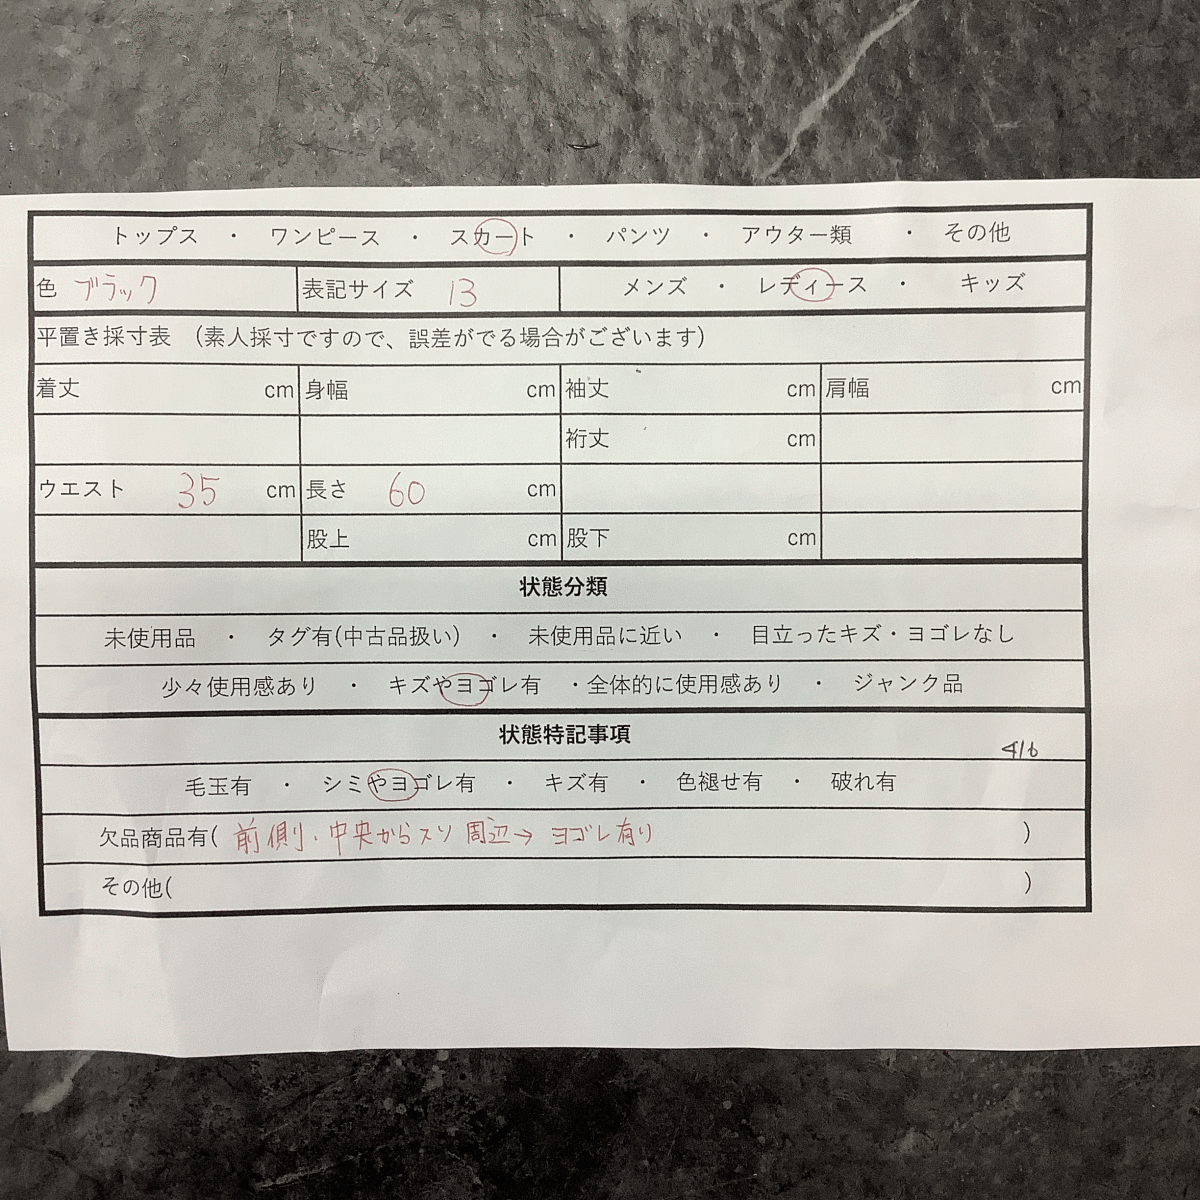 トップス ・ ワンピース ・ スカート ・ パンツ ・ アウター類 ・ その他
色 ブラック 表記サイズ 13 メンズ ・ レディース ・ キッズ
平置き採寸表 (素人採寸ですので、誤差がでる場合がございます)
着丈 cm 身幅 cm 袖丈 cm 肩幅 cm
裄丈 cm
ウエスト 35 cm 長さ 60 cm
股上 cm 股下 cm
状態分類
未使用品 ・ タグ有(中古品扱い) ・ 未使用品に近い ・ 目立ったキズ・ヨゴレなし
少々使用感あり ・ キズやヨゴレ有 ・全体的に使用感あり ・ ジャンク品
状態特記事項
416
毛玉有 ・ シミやヨゴレ有 ・ キズ有 ・ 色褪せ有 ・ 破れ有
欠品商品有( 前側・中央からスソ周辺→ ヨゴレ有り )
その他( )